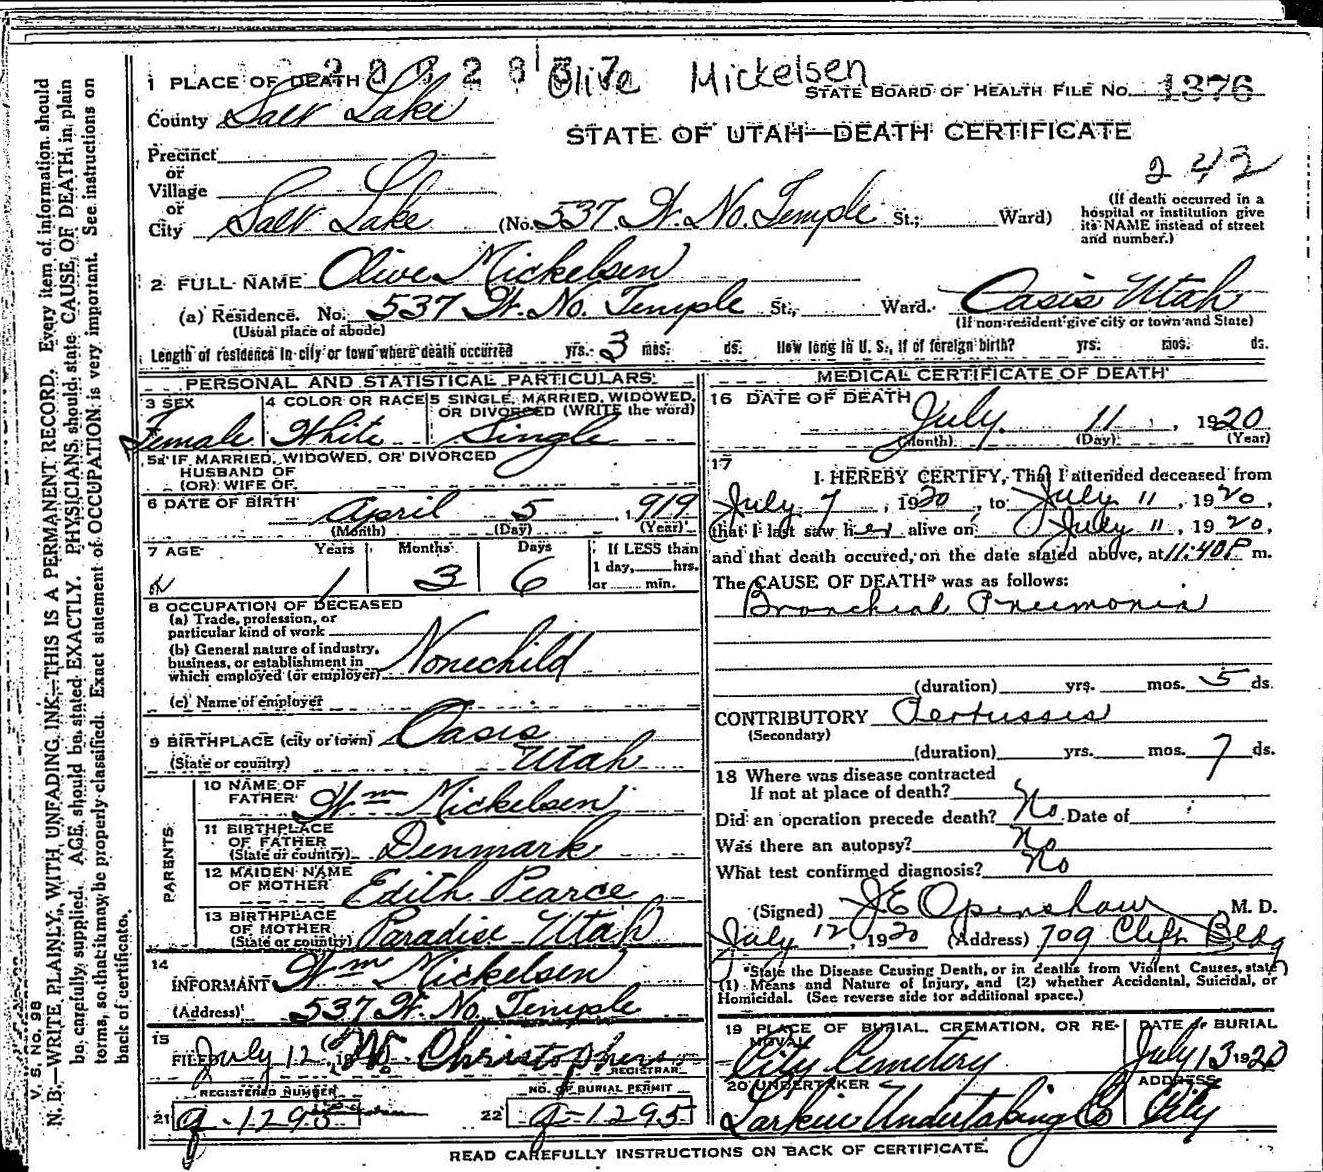 Olive Mickelsen
1 PLACE OF DEATH
STATE BOARD OF HEALTH FILE No. 1376
County Salt Lake
STATE OF UTAH—DEATH CERTIFICATE
Precinct
or
Village
or
City Salt Lake (No. 537 W. No. Temple St.; Ward)
242
(If death occurred in a
hospital or institution give
its NAME instead of street
and number.)
2 FULL NAME Olive Mickelsen
(a) Residence. No. 537 W. No. Temple St., Ward. Oasis Utah
(Usual place of abode) (If non-resident give city or town and State)
Length of residence in city or town where death occurred yrs. 3 mos. ds. How long in U. S., if of foreign birth? yrs. mos. ds.
PERSONAL AND STATISTICAL PARTICULARS
3 SEX
Female
4 COLOR OR RACE
White
5 SINGLE, MARRIED, WIDOWED,
OR DIVORCED (WRITE the word)
Single
5a IF MARRIED, WIDOWED, OR DIVORCED
HUSBAND OF
(OR) WIFE OF
6 DATE OF BIRTH April 5, 1919
(Month) (Day) (Year)
7 AGE Years Months Days If LESS than
1 day, hrs.
or min.
1 3 6
8 OCCUPATION OF DECEASED
(a) Trade, profession, or
particular kind of work
(b) General nature of industry,
business, or establishment in
which employed (or employer) None child
(c) Name of employer
9 BIRTHPLACE (city or town) Oasis
(State or country) Utah
PARENTS
10 NAME OF
FATHER Wm Mickelsen
11 BIRTHPLACE
OF FATHER
(State or country) Denmark
12 MAIDEN NAME
OF MOTHER Edith Pearce
13 BIRTHPLACE
OF MOTHER
(State or country) Paradise Utah
14
INFORMANT Wm Mickelsen
(Address) 537 W. No. Temple
15
FILED July 12, 19 W. Christophers
REGISTRAR
REGISTERED NUMBER
21 a-1295
NO. OF BURIAL PERMIT
22 a-1295
MEDICAL CERTIFICATE OF DEATH
16 DATE OF DEATH
July 11, 1920
(Month) (Day) (Year)
17
I HEREBY CERTIFY, That I attended deceased from
July 7, 1920, to July 11, 1920,
that I last saw her alive on July 11, 1920,
and that death occured, on the date stated above, at 11:40 P m.
The CAUSE OF DEATH* was as follows:
Bronchial Pneumonia
(duration) yrs. mos. 5 ds.
CONTRIBUTORY Pertussis
(Secondary)
(duration) yrs. mos. 7 ds.
18 Where was disease contracted
If not at place of death?
Did an operation precede death? No Date of
Was there an autopsy? No
What test confirmed diagnosis? No
(Signed) J E Openshaw M. D.
July 12, 1920 (Address) 709 Clift Bldg
*State the Disease Causing Death, or in deaths from Violent Causes, state
(1) Means and Nature of Injury, and (2) whether Accidental, Suicidal, or
Homicidal. (See reverse side for additional space.)
19 PLACE OF BURIAL, CREMATION, OR RE-
MOVAL
City Cemetery
DATE OF BURIAL
July 13 1920
20 UNDERTAKER
Larkin Undertaking Co
ADDRESS
City
READ CAREFULLY INSTRUCTIONS ON BACK OF CERTIFICATE.
V. S. No. 98
N. B.—WRITE PLAINLY, WITH UNFADING INK—THIS IS A PERMANENT RECORD. Every item of information should
be carefully supplied. AGE should be stated EXACTLY. PHYSICIANS should state CAUSE OF DEATH in plain
terms, so that it may be properly classified. Exact statement of OCCUPATION is very important. See instructions on
back of certificate.